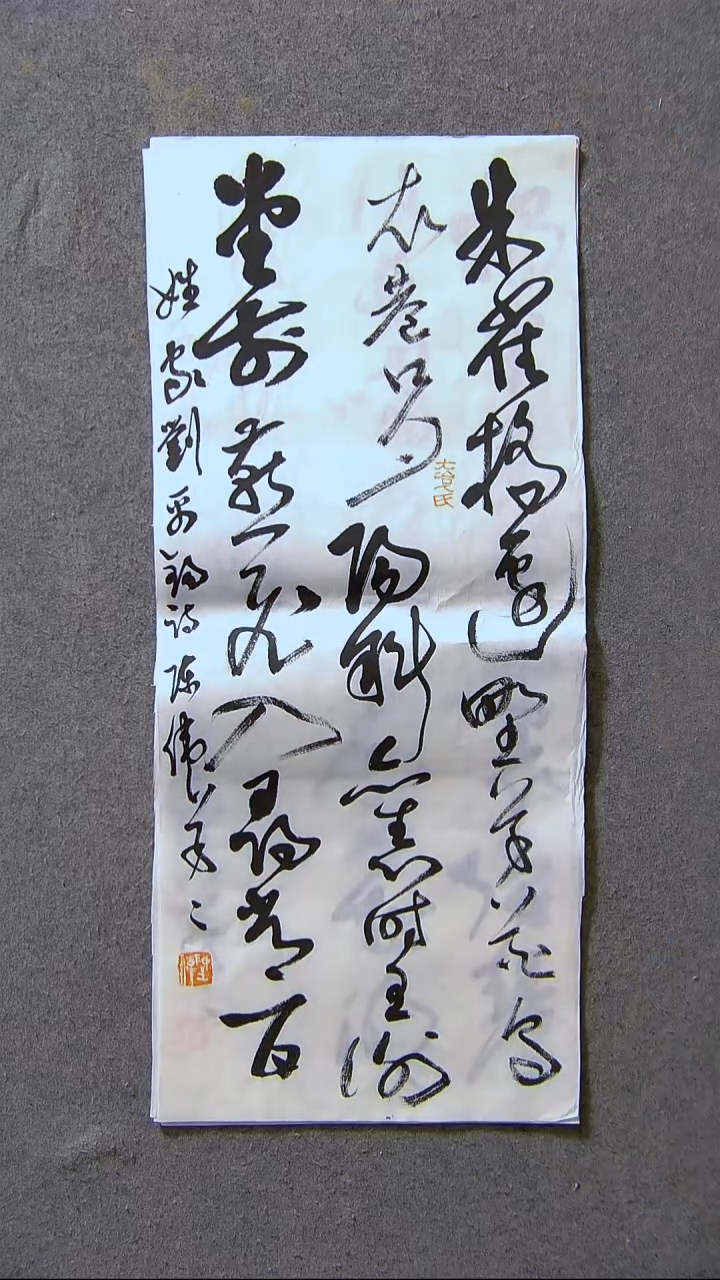 朱雀橋邊野草花烏
衣巷口夕陽斜舊時王謝
堂前燕飛入尋常百
姓家劉禹錫詩陳偉草之